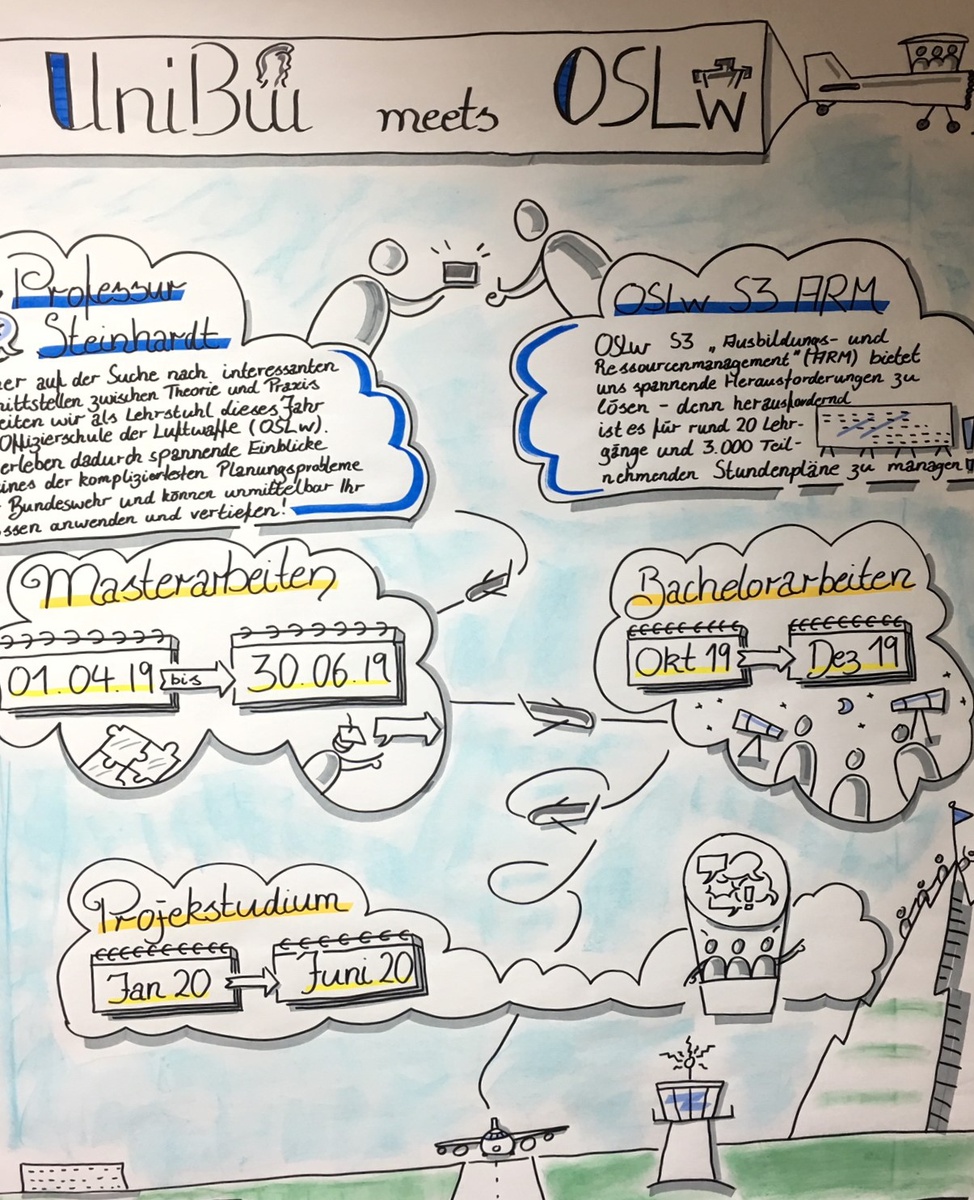 UniBw meets OSLw
Professur
Steinhardt
auf der Suche nach interessanten
zwischen Theorie und Praxis
wir als Lehrstuhl dieses Jahr
Offizierschule der Luftwaffe (OSLw).
erleben dadurch spannende Einblicke
eines der kompliziertesten Planungsprobleme
Bundeswehr und können unmittelbar Ihr
anwenden und vertiefen!
OSLw S3 ARM
OSLw S3 „Ausbildungs- und
Ressourcenmanagement" (ARM) bietet
uns spannende Herausforderungen zu
lösen - denn herausfordernd
ist es für rund 20 Lehr-
gänge und 3.000 Teil-
nehmenden Stundenpläne zu managen
Masterarbeiten
01.04.19 bis 30.06.19
Bachelorarbeiten
Okt 19 Dez 19
Projekstudium
Jan 20 Juni 20